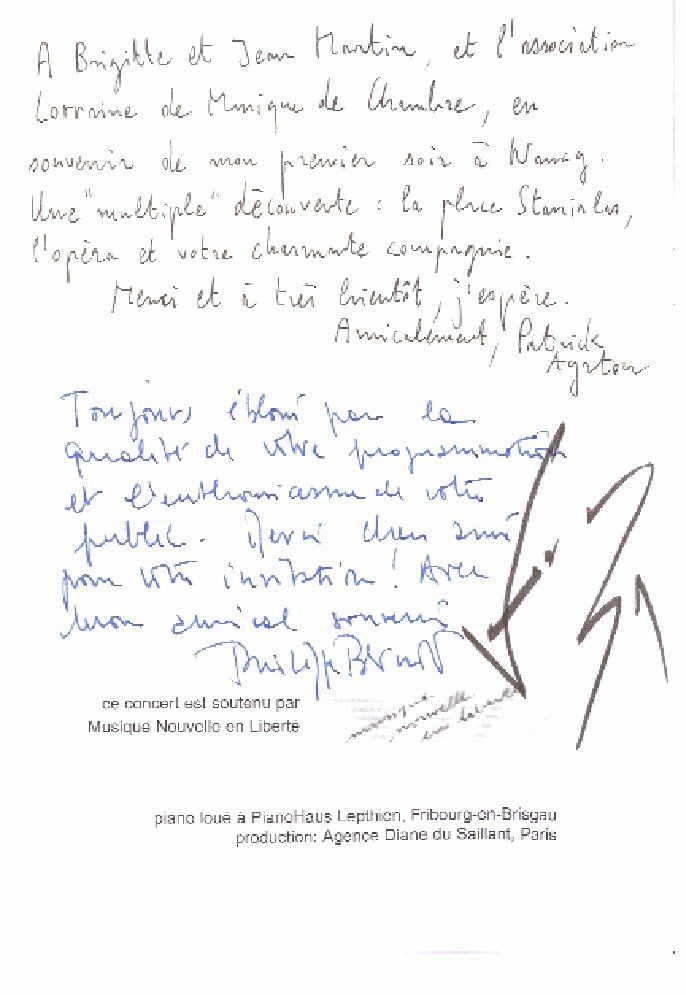 A Brigitte et Jean Martin, et l'association
Lorraine de Musique de Chambre, en
souvenir de mon premier soir à Nancy.
Une "multiple" découverte : la place Stanislas,
l'opéra et votre charmante compagnie.
Merci et à très bientôt, j'espère.
Amicalement, Patrick
Ayrton
Toujours ébloui par la
qualité de votre programmation
et l'enthousiasme de votre
public. Merci cher ami
pour votre invitation ! Avec
mon amical souvenir
ce concert est soutenu par
Musique Nouvelle en Liberté
musique
nouvelle
en liberté
piano loué à PianoHaus Lepthien, Fribourg-en-Brisgau
production: Agence Diane du Saillant, Paris